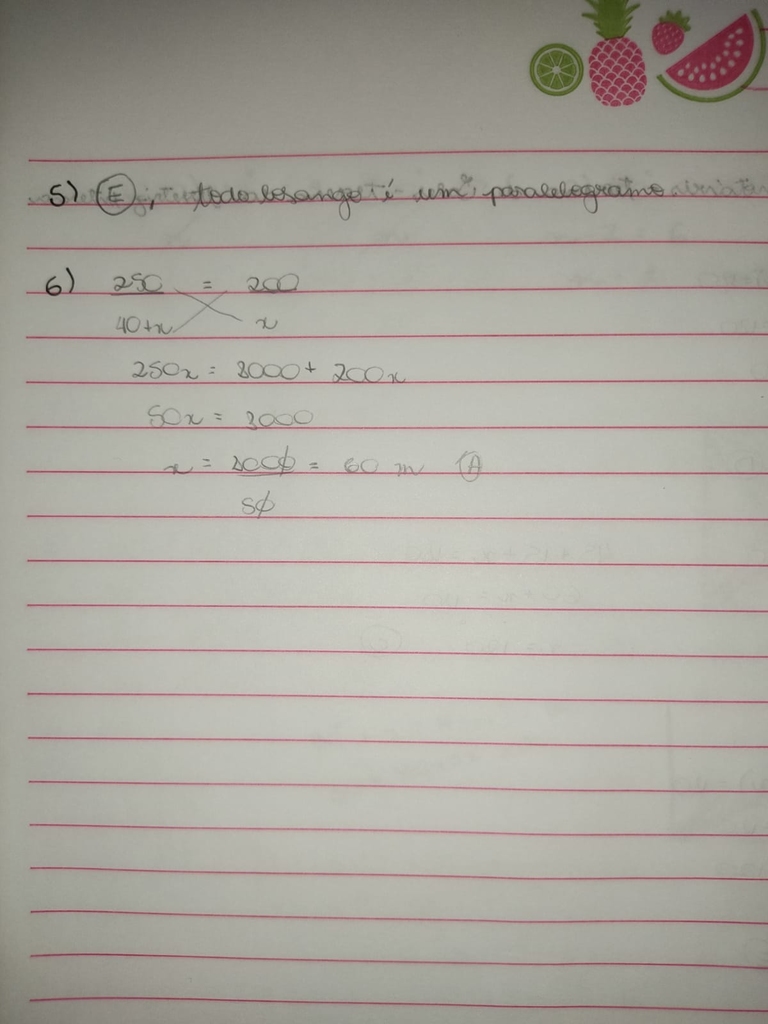 5) E, todo losango é um paralelogramo
6) 250 = 200
40+x x
250x = 8000 + 200x
50x = 3000
x = 3000 = 60 m A
50